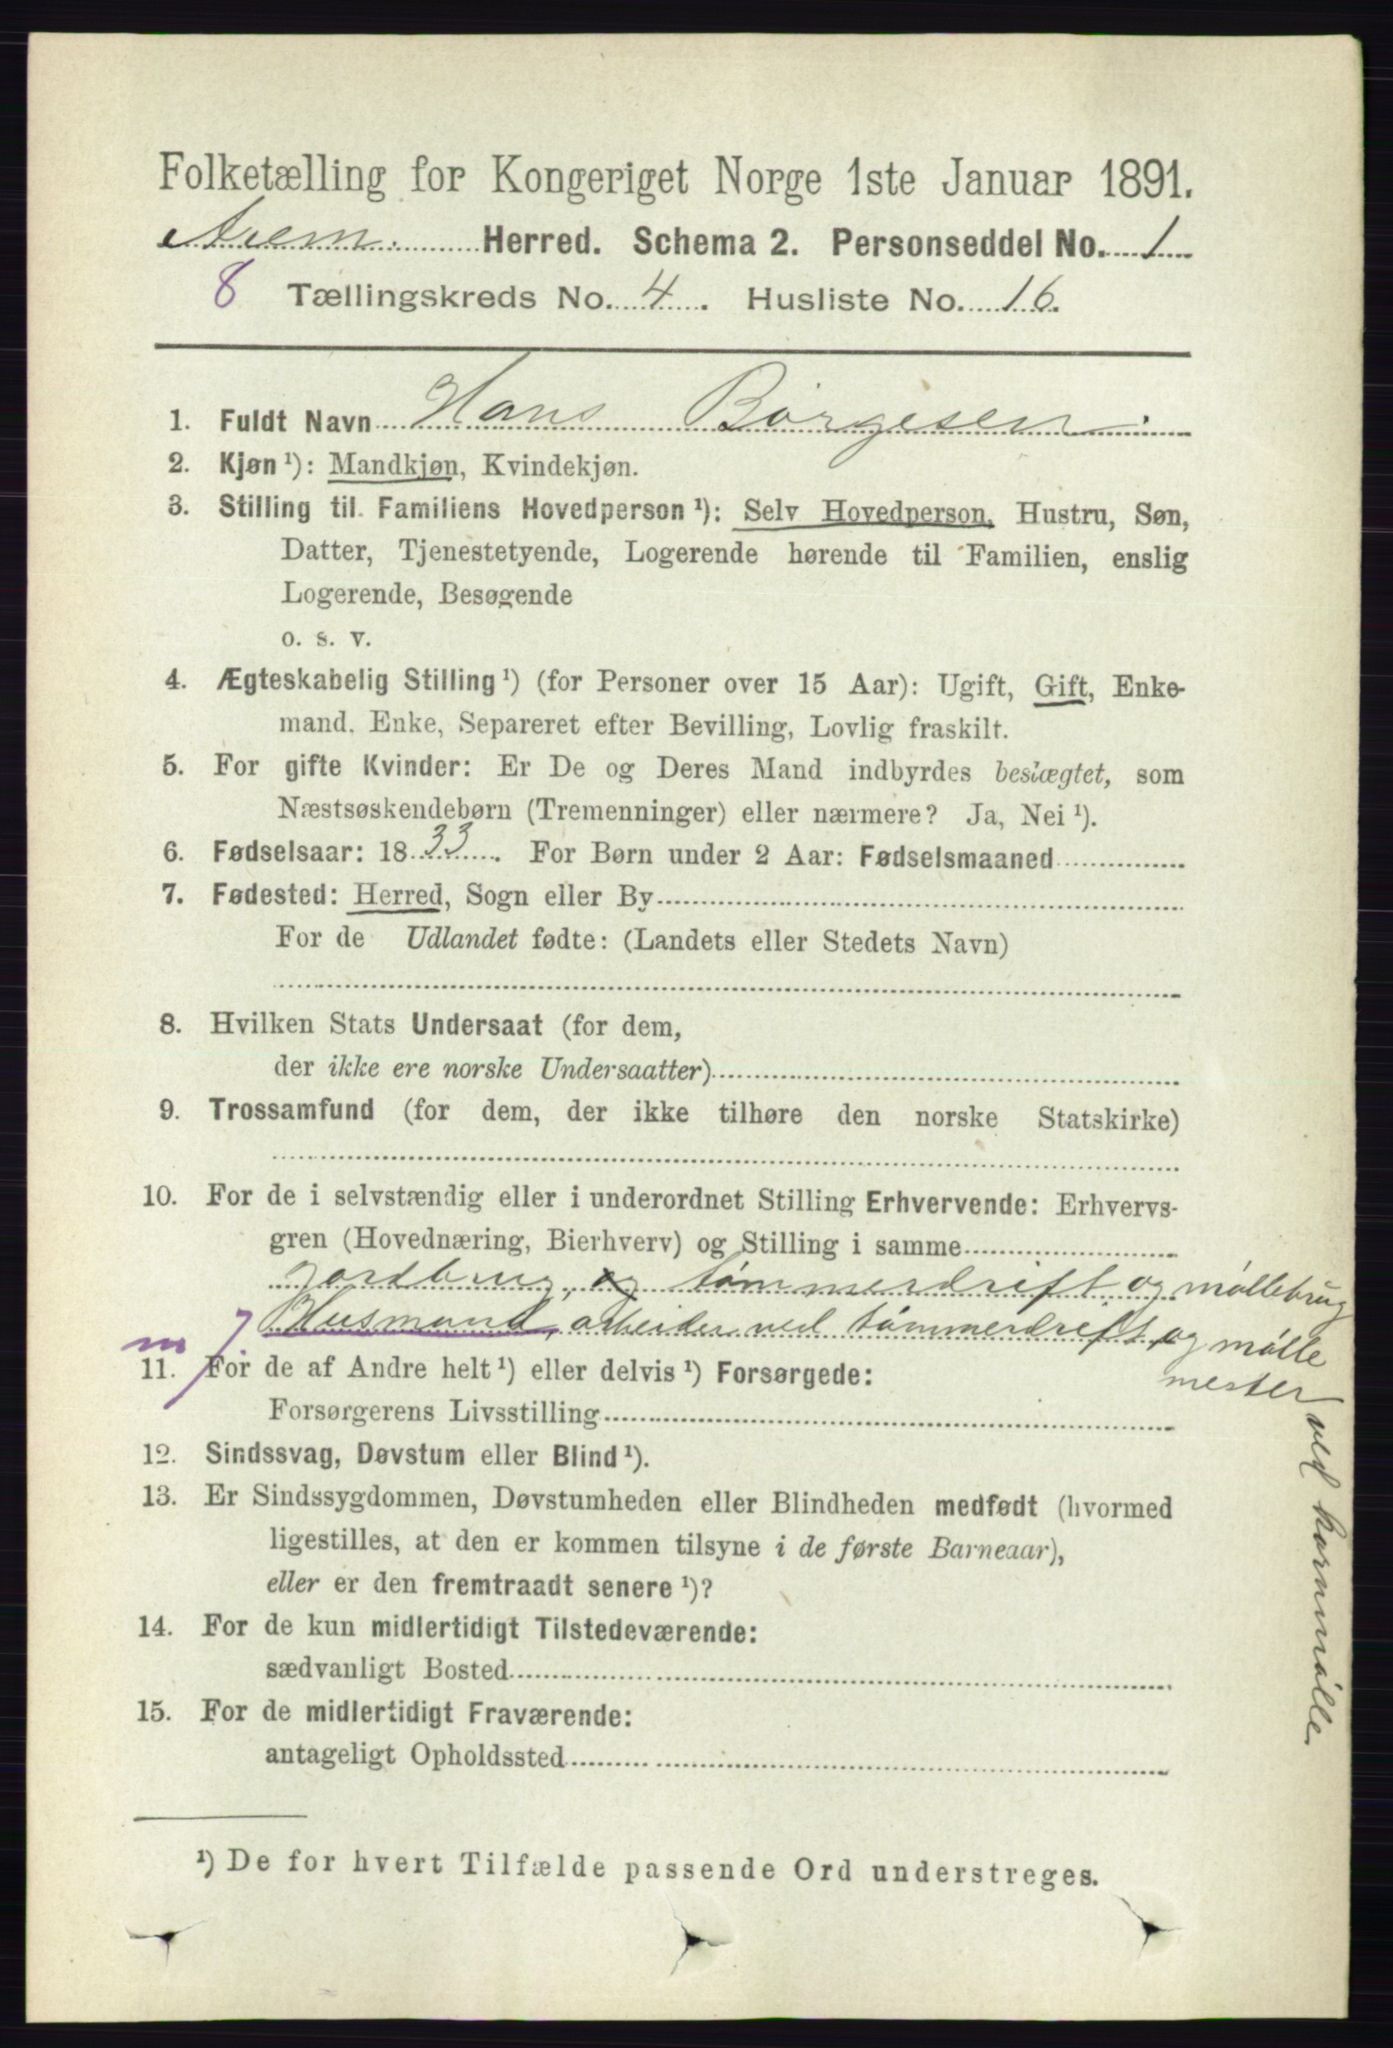 Folketælling for Kongeriget Norge 1ste Januar 1891.
Herred. Schema 2. Personseddel No. 1
8 Tællingskreds No. 4. Husliste No. 16.
1. Fuldt Navn Hans Børgesen.
2. Kjøn ¹): Mandkjøn, Kvindekjøn.
3. Stilling til Familiens Hovedperson ¹): Selv Hovedperson, Hustru, Søn,
Datter, Tjenestetyende, Logerende hørende til Familien, enslig
Logerende, Besøgende
o. s. v.
4. Ægteskabelig Stilling ¹) (for Personer over 15 Aar): Ugift, Gift, Enke-
mand, Enke, Separeret efter Bevilling, Lovlig fraskilt.
5. For gifte Kvinder: Er De og Deres Mand indbyrdes beslægtet, som
Næstsøskendebørn (Tremenninger) eller nærmere? Ja, Nei ¹).
6. Fødselsaar: 1833. For Børn under 2 Aar: Fødselsmaaned
7. Fødested: Herred, Sogn eller By
For de Udlandet fødte: (Landets eller Stedets Navn)
8. Hvilken Stats Undersaat (for dem,
der ikke ere norske Undersaatter)
9. Trossamfund (for dem, der ikke tilhøre den norske Statskirke)
10. For de i selvstændig eller i underordnet Stilling Erhvervende: Erhvervs-
gren (Hovednæring, Bierhverv) og Stilling i samme
jordbrug, og tømmerdrift og møllebrug
Husmand, arbeider ved tømmerdrift, og mølle
mester ved kornmølle.
m
11. For de af Andre helt ¹) eller delvis ¹) Forsørgede:
Forsørgerens Livsstilling
12. Sindssvag, Døvstum eller Blind ¹).
13. Er Sindssygdommen, Døvstumheden eller Blindheden medfødt (hvormed
ligestilles, at den er kommen tilsyne i de første Barneaar),
eller er den fremtraadt senere ¹)?
14. For de kun midlertidigt Tilstedeværende:
sædvanligt Bosted
15. For de midlertidigt Fraværende:
antageligt Opholdssted
¹) De for hvert Tilfælde passende Ord understreges.